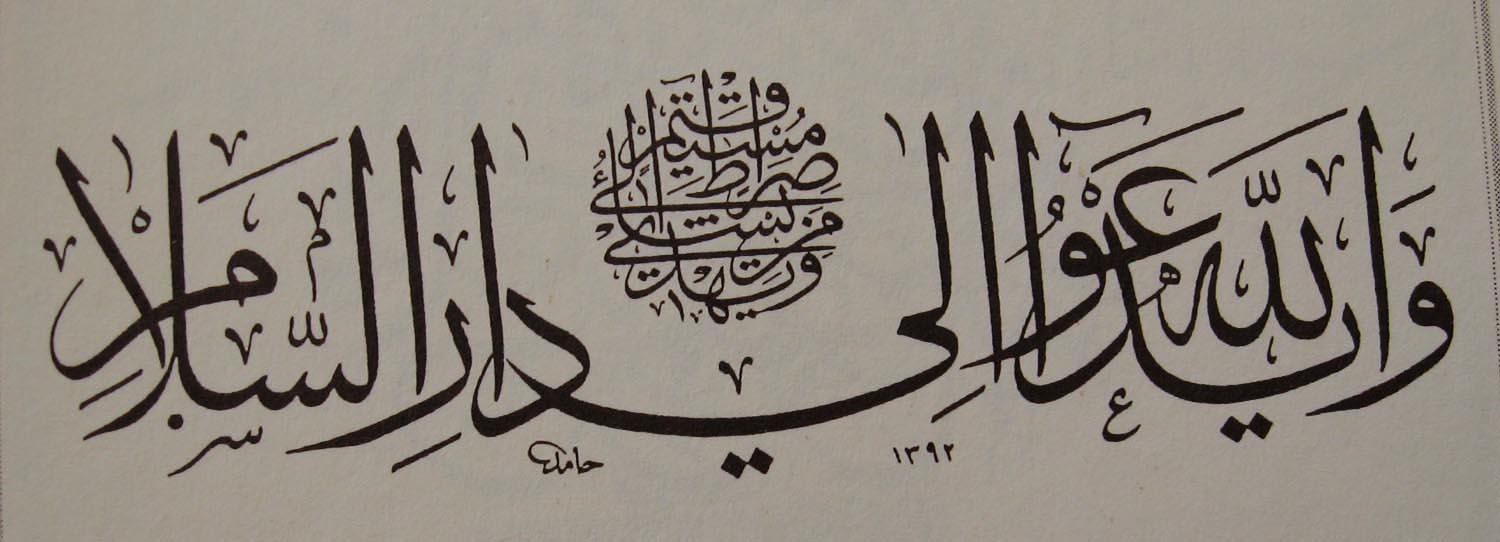 وَاللّٰهُ يَدْعُوٓا اِلٰى دَارِ السَّلَامِ
وَيَهْدِى مَنْ يَشَٓاءُ اِلٰى صِرَاطٍ مُسْتَقِيمٍ
حامد
١٣٩٢